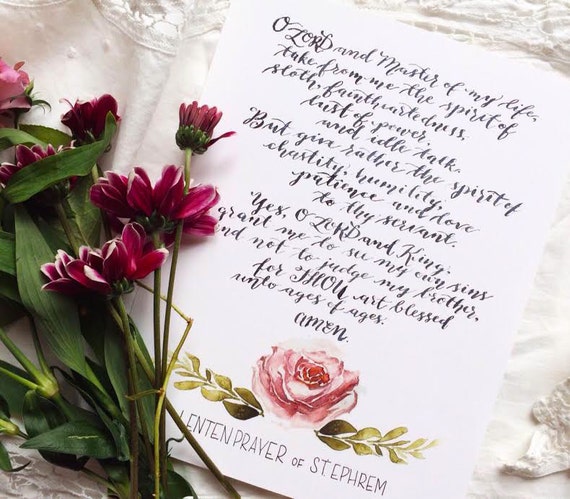 O LORD and Master of my life,
take from me the spirit of
sloth, faintheartedness,
lust of power,
and idle talk.
But give rather the spirit of
chastity, humility,
patience and love
to thy servant.
Yes, O LORD and King:
grant me to see my own sins
and not to judge my brother,
for THOU art blessed
unto ages of ages.
AMEN.
LENTEN PRAYER OF ST EPHREM